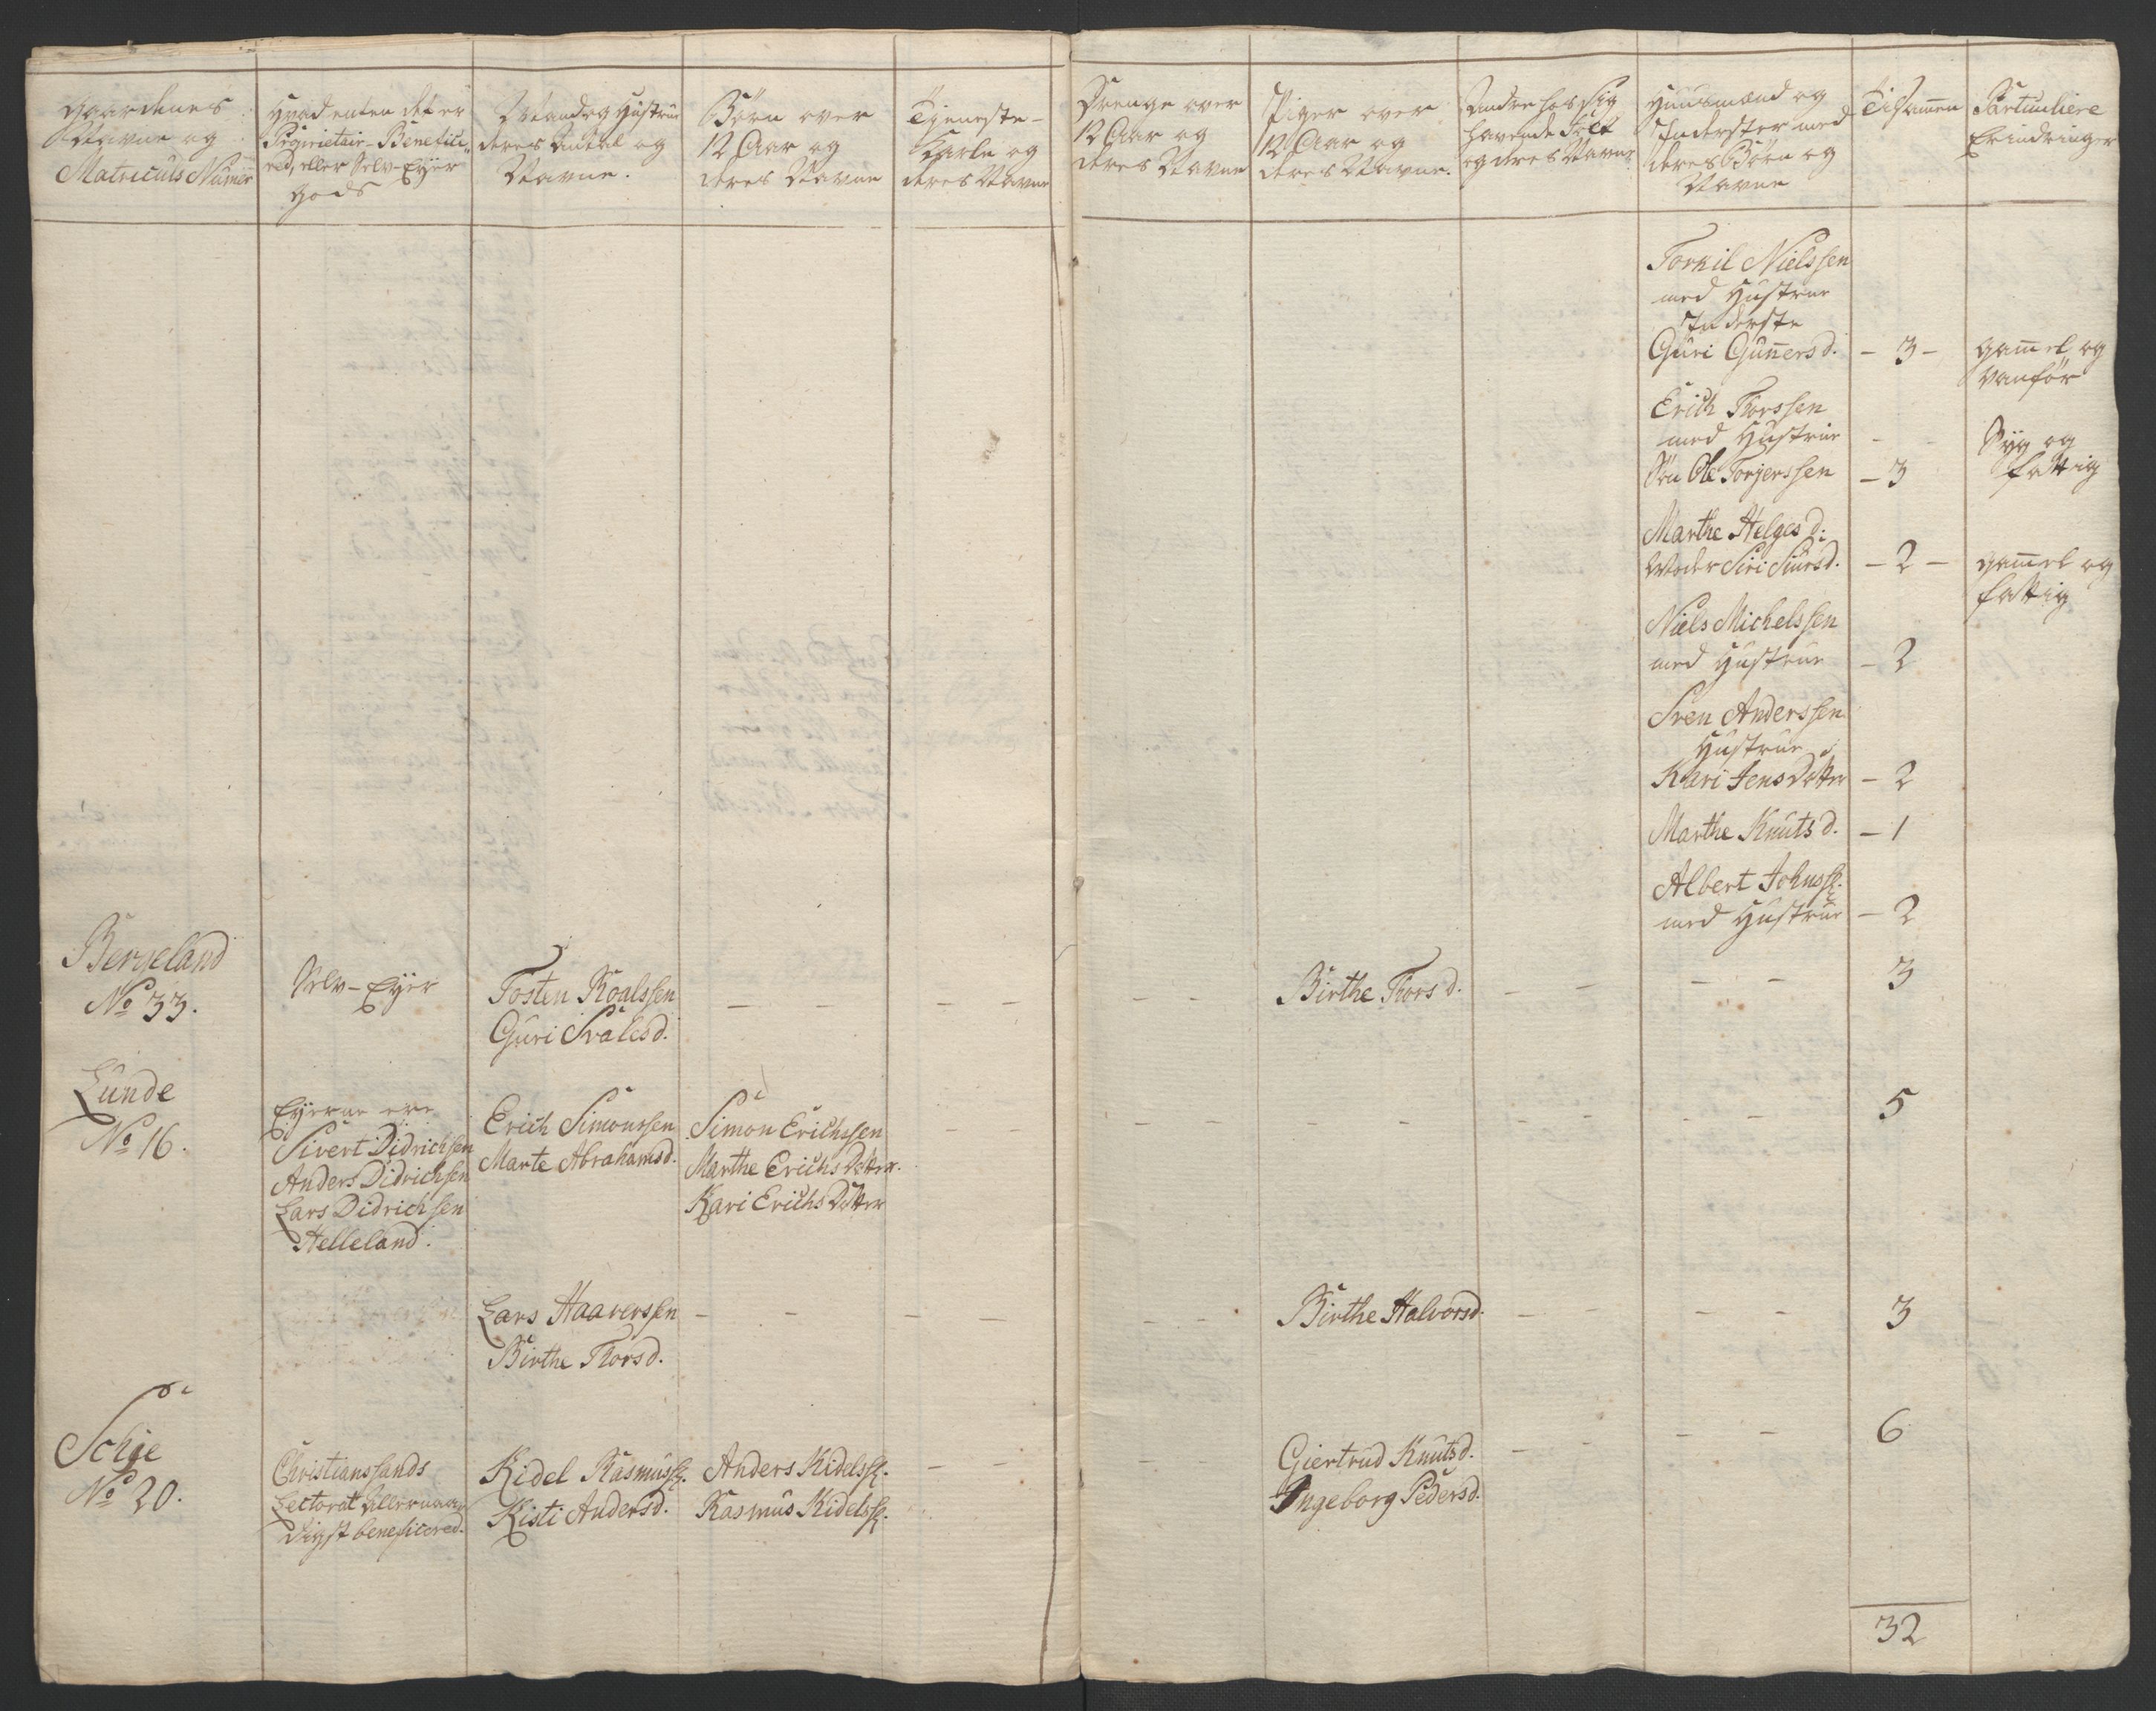 Gaardenes
Navne og
Matriculs Numer
Hvad enten det er
Proprietair-Benefici-
red, eller Selv-Eyer
Gods
Mand og Hustrue
deres Antal og
Navne.
Børn over
12 Aar og
deres Navne
Tjeneste-
Karle og
deres Navne
Drenge over
12 Aar og
deres Navne
Piger over
12 Aar og
deres Navne.
Andre hos sig
havende Folk
og deres Navne
Huusmænd og
Inderster med
deres Børn og
Navne
Tilsam̄en
Particuliere
Erindringer
Torkil Nielssen
med Hustrue
Inderste
Guri Gun̄ersd. - 3 - gam̄el og
vanfør
Erich Thorssen
med Hustrue - - Syg og
Søn Ole Torjerssen - 3 fattig
Marthe Helgesd:
Moder Siri Siursd. - 2 - gam̄el og
fattig
Niels Michelssen
med Hustrue - 2
Sven Anderssen
Hustrue
Kari Jens Datter - 2
Marthe Knutsd. - 1
Albert Johnss.
med Hustrue - 2
Bergeland
No 33.
Selv-Eyer
Tosten Roalssen - - - - - - Birthe Thorsd. - - - - 3
Guri Svalesd.
Lunde
No 16.
Eyerne ere
Sivert Didrichsen
Anders Didrichsen
Lars Didrichsen
Helleland.
Erich Simonssen
Marte Abrahamsd.
Simon Erichssen
Marthe Erichs Datter.
Kari Erichs Datter
- - - - - - - - - - 5
Lars Haaverssen - - - - - - Birthe Halvorsd. - - - - 3
Birthe Thorsd.
Schie
No 20.
Christianssands
Lectorat Allernaa-
digst beneficered.
Kidel Rasmuss.
Kisti Andersd.
Anders Kidelss.
Rasmus Kidelss.
- - - Giertrud Knutsd. - - - - 6
Ingeborg Pedersd.
32